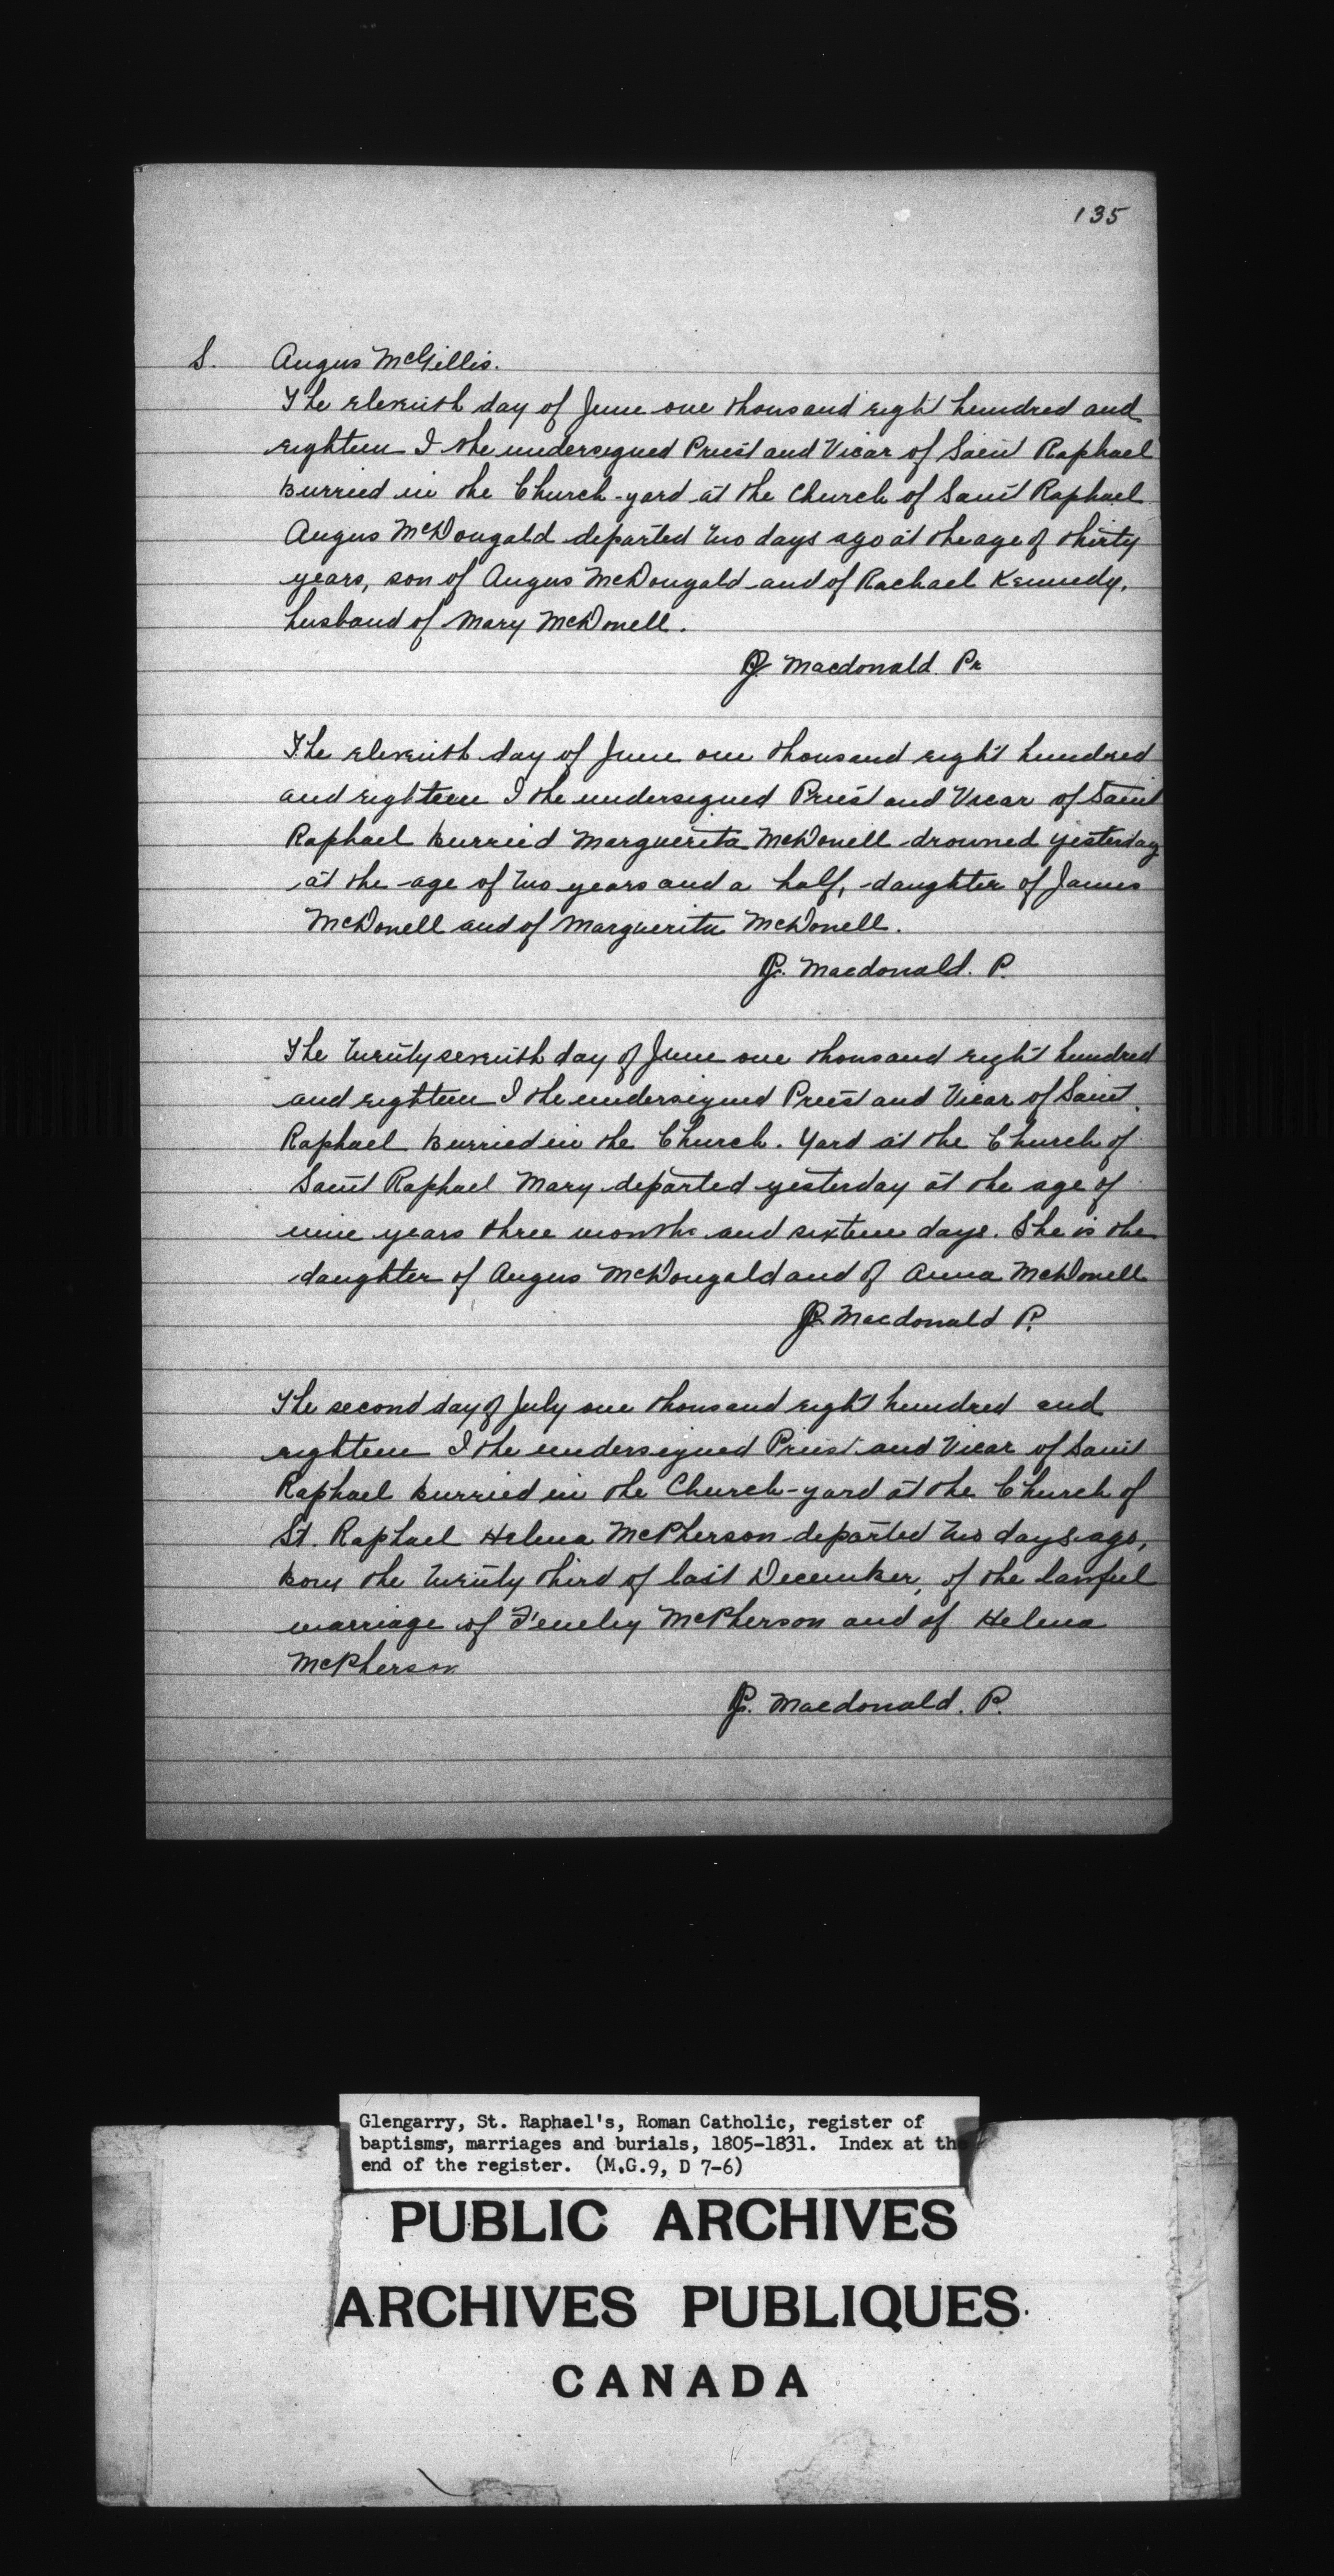 135
S. Angus McGillis.
The eleventh day of June one thousand eight hundred and
eighteen I the undersigned Priest and Vicar of Saint Raphael
burried in the Church-yard at the Church of Saint Raphael
Angus McDougald departed two days ago at the age of thirty
years, son of Angus McDougald and of Rachael Kennedy,
husband of Mary McDonell.
J. Macdonald. Pr
The eleventh day of June one thousand eight hundred
and eighteen I the undersigned Priest and Vicar of Saint
Raphael burried Marguerita McDonell drowned yesterday
at the age of two years and a half, daughter of James
McDonell and of Marguerita McDonell.
J. Macdonald. P.
The twenty seventh day of June one thousand eight hundred
and eighteen I the undersigned Priest and Vicar of Saint
Raphael burried in the Church. Yard at the Church of
Saint Raphael Mary departed yesterday at the age of
nine years three months and sixteen days. She is the
daughter of Angus McDougald and of Anna McDonell
J. Macdonald P.
The second day of July one thousand eight hundred and
eighteen I the undersigned Priest and Vicar of Saint
Raphael burried in the Church-yard at the Church of
St. Raphael Helena McPherson departed two days ago,
born the twenty third of last December, of the lawful
marriage of McPherson and of Helena
McPherson
J. Macdonald. P.
Glengarry, St. Raphael's, Roman Catholic, register of
baptisms, marriages and burials, 1805-1831. Index at the
end of the register. (M.G.9, D 7-6)
PUBLIC ARCHIVES
ARCHIVES PUBLIQUES
CANADA